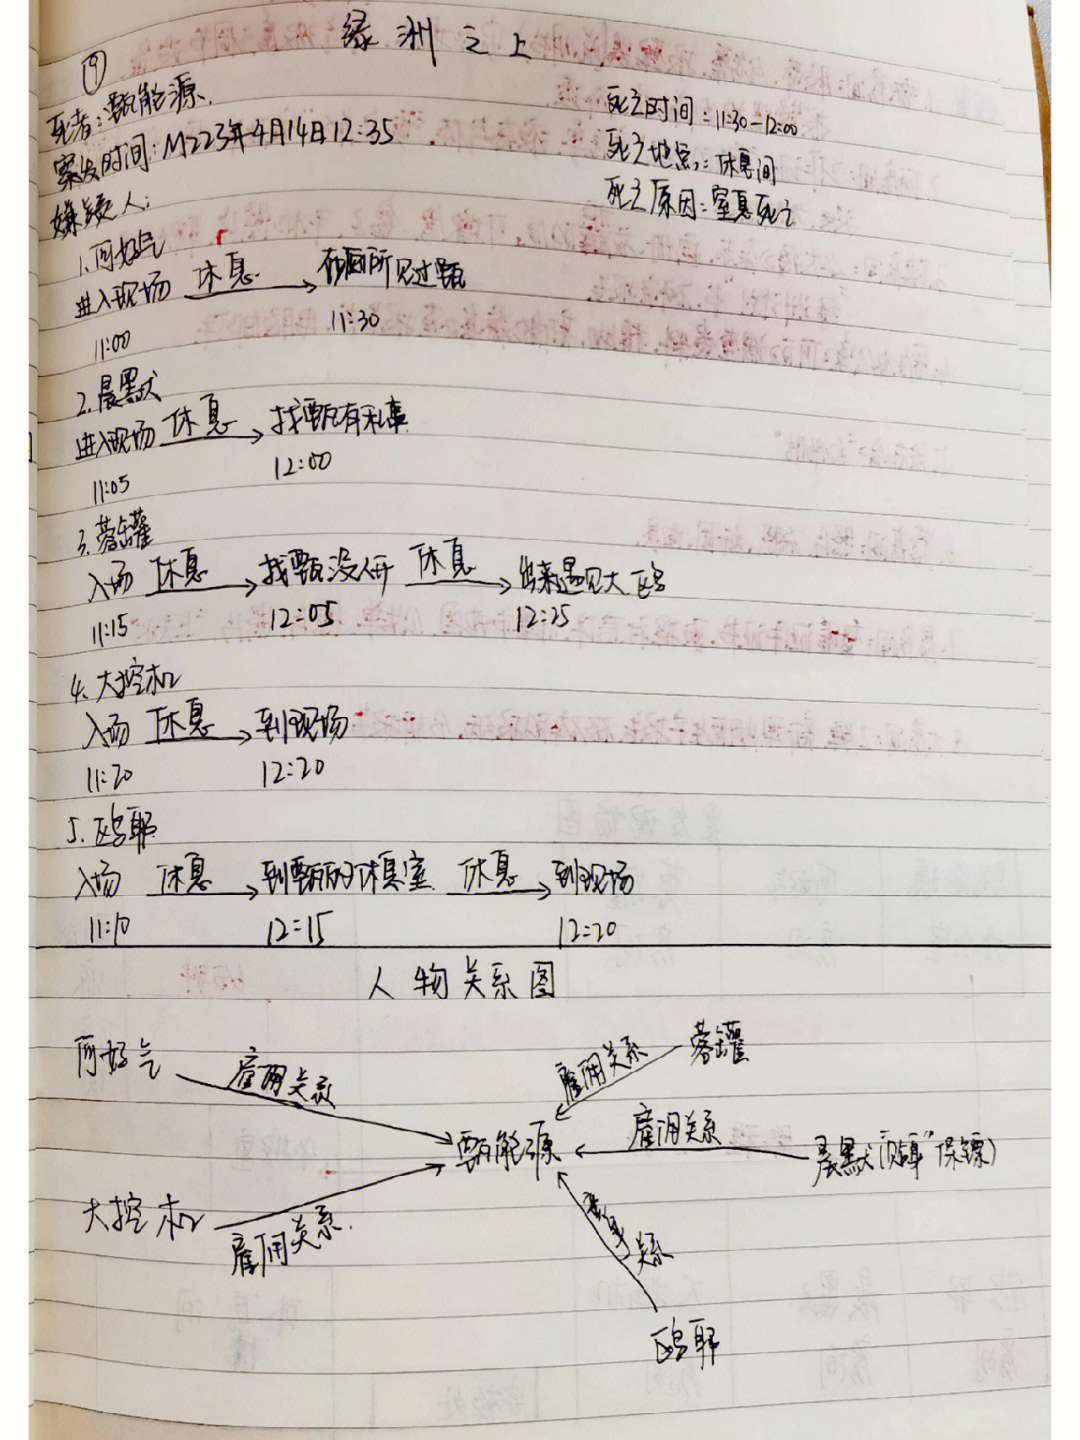 绿洲之上
⑲
死者：甄能源
死亡时间：11:30-12:00
案发时间：M223年4月14日12:35
死亡地点：休息间
嫌疑人：
死亡原因：窒息死亡
1.何好气
进入现场 休息 在厕所见过甄
11:00 11:30
2.晨默
进入现场 休息 找甄有私事
11:05 12:00
3.蓉罐
入场 休息 找甄没人开 休息 出来遇见大 鸥
11:15 12:05 12:25
4.大控机
入场 休息 到现场
11:20 12:20
5.鸥耶
入场 休息 到甄的休息室 休息 到现场
11:10 12:15 12:20
人物关系图
何好气 雇佣关系
雇佣关系 蓉罐
甄能源 雇佣关系 晨默 "保镖）
大控机 雇佣关系
关系
鸥耶